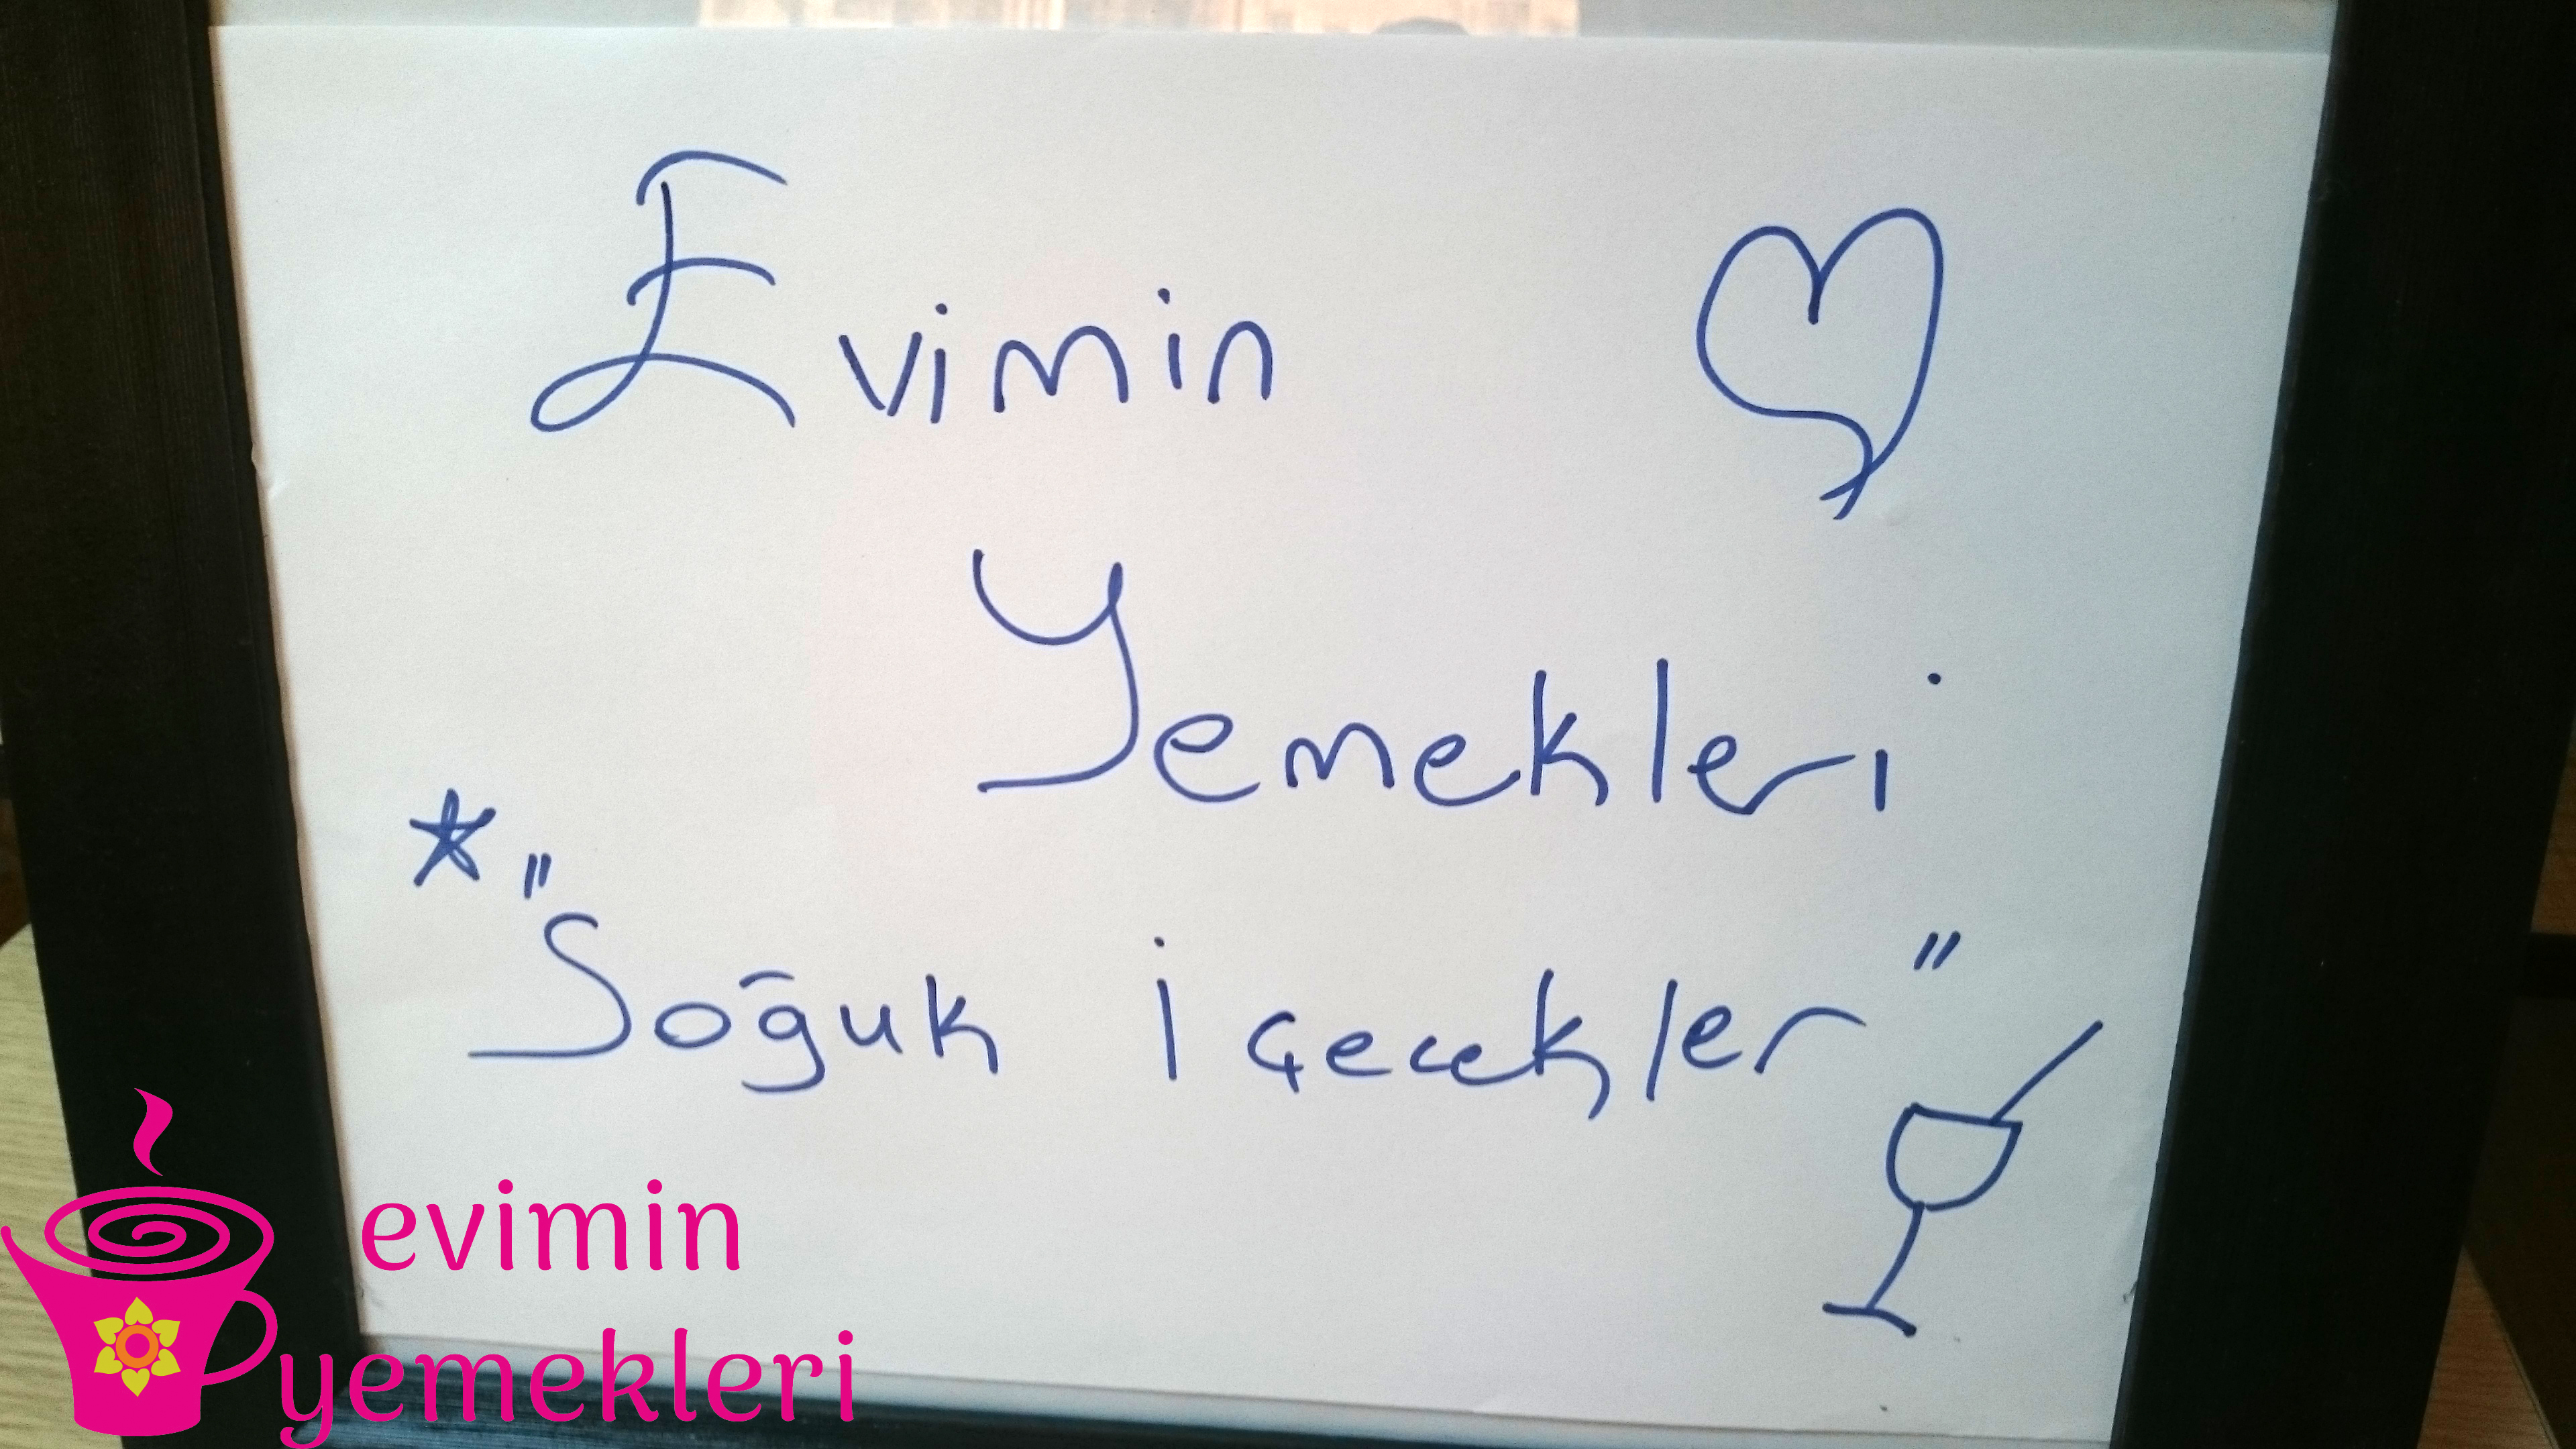 Evimin
Yemekleri
* "Soğuk İçecekler"
evimin
yemekleri